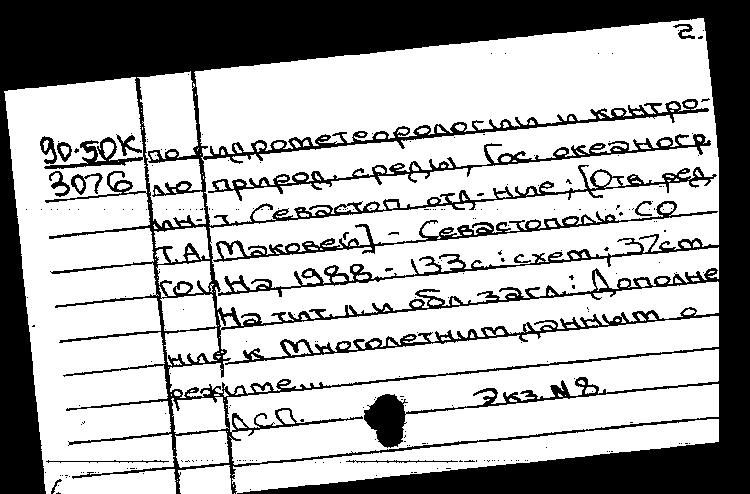 2.
90-50К по гидрометеорологии и контро-
3076 лю природ. среды, Гос. океаногр.
ин-т. Севастоп. отд-ние; [Отв. ред.
Т.А. Маковей]. - Севастополь: СО
ГОИНа, 1988. - 133с.: схем.; 37см.
На тит. л. и обл. загл.: Дополне
ние к Многолетним данным о
режиме...
ДСП. Экз. N 8.